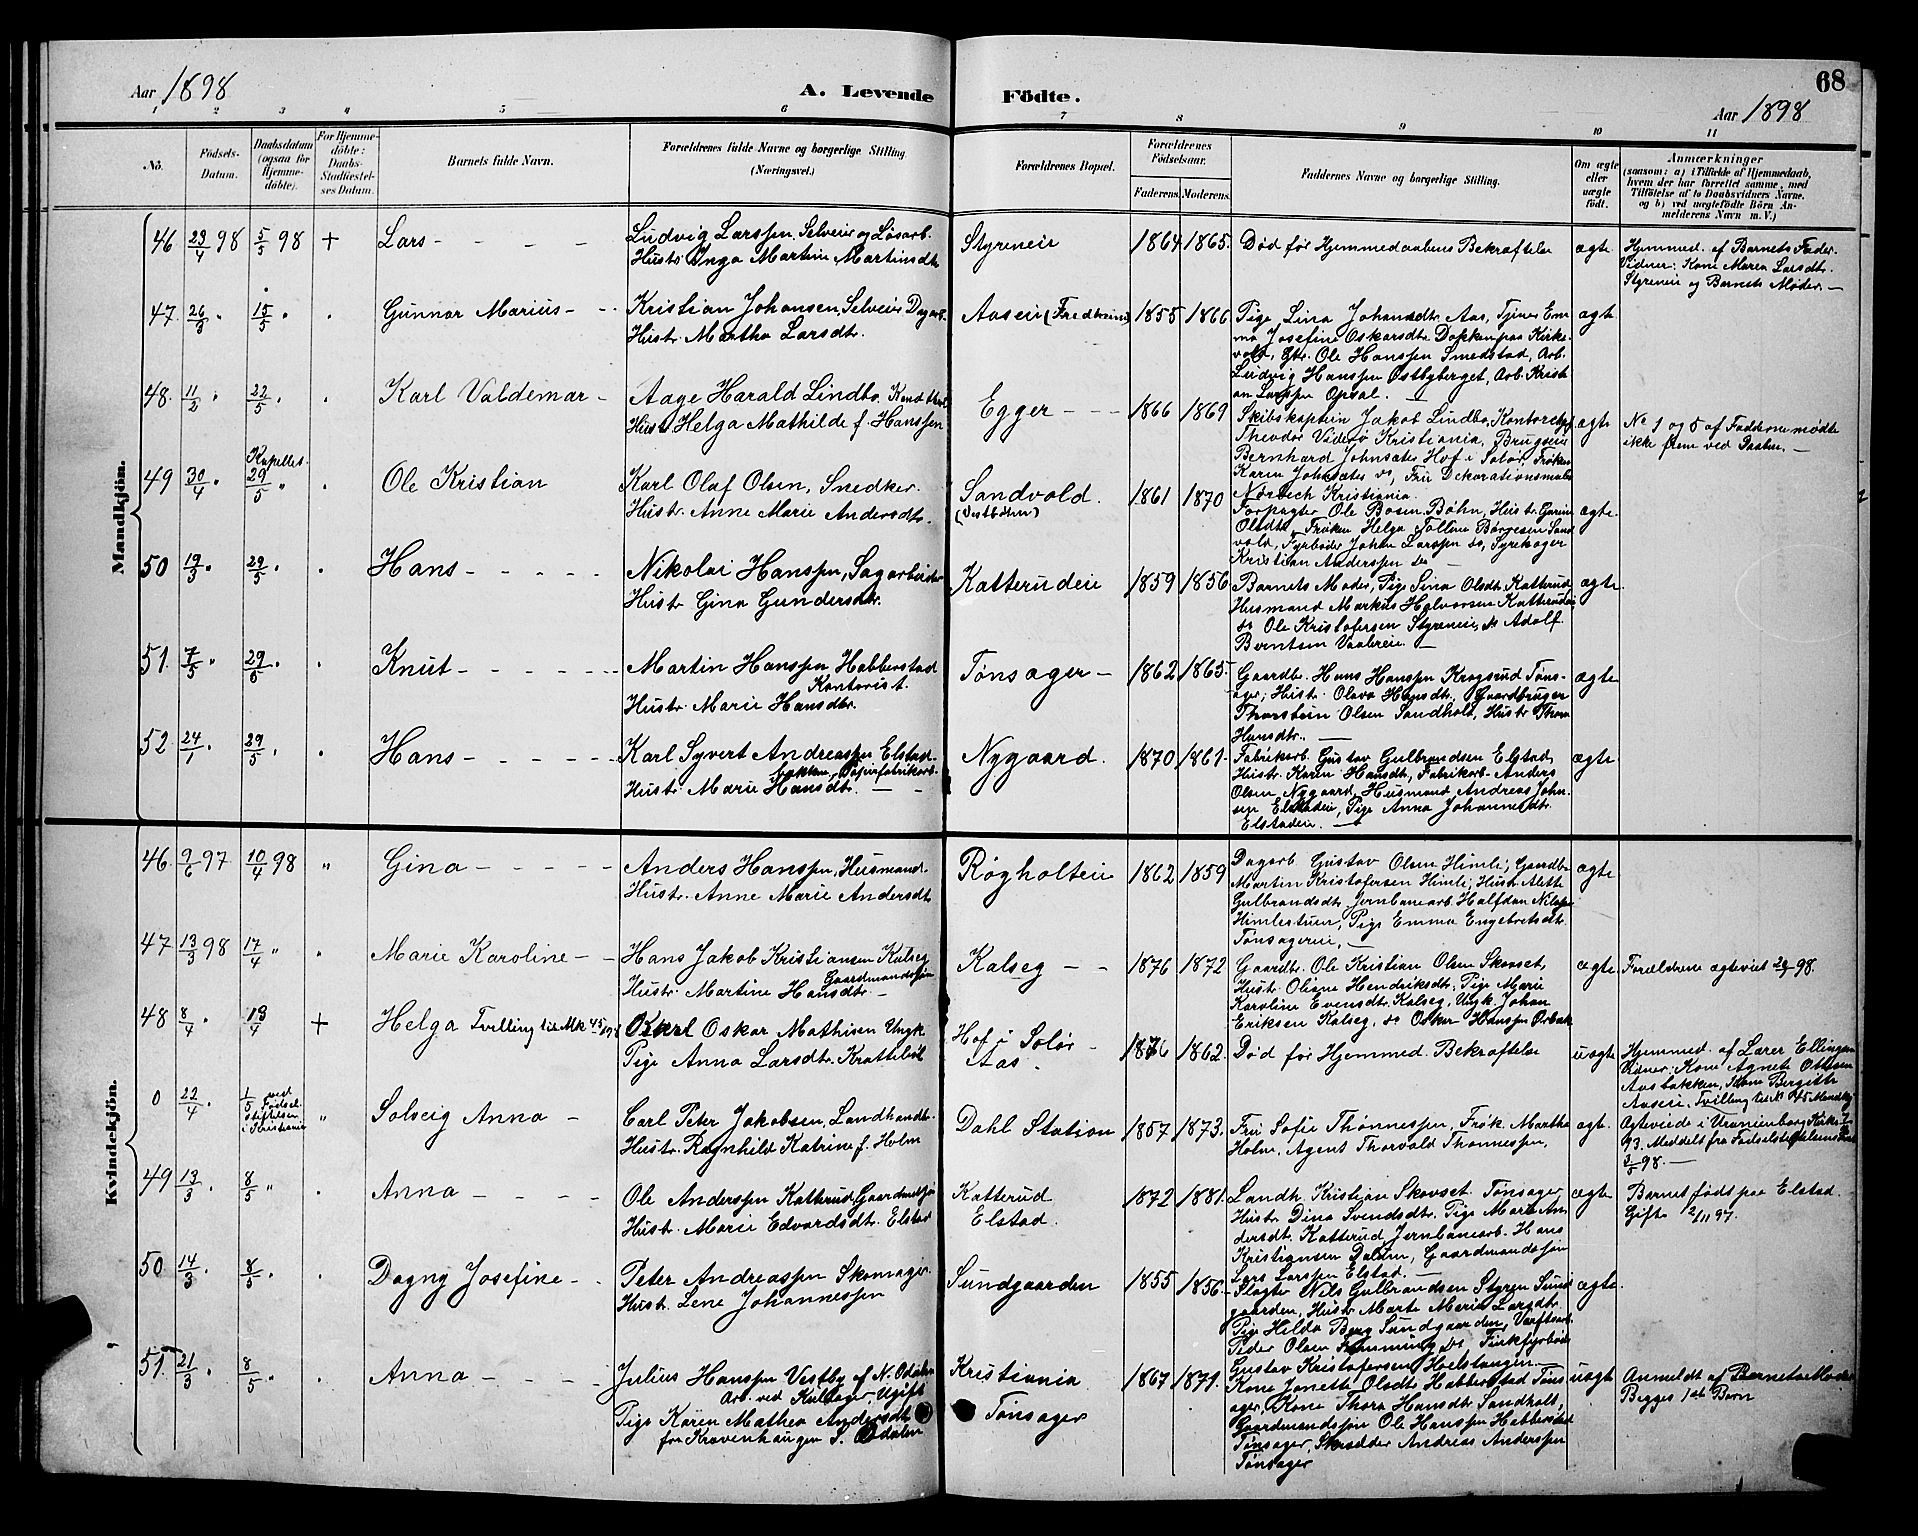 68
Aar 1898
A. Levende Födte.
Aar 1898
1 2 3 4 5 6 7 8 9 10 11
No.
Födsels-Datum.
Daabsdatum (ogsaa for Hjemmedöbte).
For Hjemmedöbte: Daabs-Stadfæstelses Datum.
Barnets fulde Navn.
Forældrenes fulde Navne og borgerlige Stilling (Næringsvei.)
Forældrenes Bopæl.
Forældrenes Födselsaar.
Faderens. Moderens.
Faddernes Navne og borgerlige Stilling.
Om ægte eller uægte födt.
Anmærkninger
(saasom: a) i Tilfælde af Hjemmedaab, hvem der har forrettet samme, med Tilföielse af to Daabsvidners Navne, og b) ved uægtefödte Börn Anmelderens Navn m. V.)
Mandkjön.
46 29/4 98 5/5 98 + Lars
Ludvig Larssen, Selveier og Løsarb.
Hustr. Inga Martine Martinsdtr
Styreneie 1864 1865
Død før Hjemmedaabens Bekræftelse
ægte
Hjemmed. af Barnets Fader.
Vidner: Kone Maren Larsdtr.
Styreneie og Barnets Moder.
47 26/3 15/5 Gunnar Marius
Kristian Johansen, Selveier Dagarb.
Hustr. Martha Larsdtr.
Aaseie 1855 1866
Pige Lina Johansdtr. Aas, Tjener Em-
ma Josefine Oskarsdtr. Dokken paa Kirke-
vold, Gtr. Ole Hanssen Smedstad, Arb.
Ludvig Hanssen Østbyberget, Arb. Kristi-
an Larssen Opsal.
ægte
48. 11/2 22/5 Karl Valdemar
Aage Harald Lindbo,
Hustr. Helga Mathilde f. Hanssen
Egger 1866 1869
Skibskaptein Jakob Lindbo, Kontorchef
Theodor Viderø Kristiania, Brugseier
Bernhard Johnsæter Hof i Solør, Frøken
Karen Johnsæter do, Fru Dekorationsmaler
Nørbech Kristiania.
ægte
No 1 og 5 af Fadderne mødte
ikke frem ved Daaben.
49 30/4 Kapellet 29/5 Ole Kristian
Karl Olaf Olsen, Snedker.
Hustr. Anne Marie Andersdtr.
Sandvold. 1861 1870
Forpagter Ole Bosen Bøhn, Hustr.
Olsdtr, Frøken Helga Børgesen Sand-
vold, Fyrbøder Johan Larssen do,
Kristian Anderssen do
ægte.
50 19/3 29/5 Hans
Nikolai Hanssen, Sagarbeider
Hustr. Gina Gundersdtr.
Katterudeie 1859 1856
Barnets Moder, Pige Sina Olsdtr. Katterud,
Husmand Markus Halvorsen Katterudeie
do Ole Kristofersen Styreneie, do Adolf
Berntsen Vaalereie.
ægte
51. 7/5 29/5 Knut
Martin Hanssen Habberstad
Kontorist.
Hustr. Marie Hansdtr.
Tønsager 1862 1865
Gaardbr. Hans Hanssen Krogsrud Tøns-
ager, Hustr. Olava Hansdtr, Gaardbruger
Thorstein Olsen Sandholt, Hustr Thora
Hansdtr.
ægte
52. 24/1 29/5 Hans
Karl Syvert Andreassen Elstad-
bakken, Papirfabrikarb.
Hustr. Marie Hansdtr.
Nygaard. 1870 1861
Fabrikarb. Gustav Gulbrandsen Elstad,
Hustr. Karen Hansdtr, Fabrikarb. Anders
Olsen Nygaard, Husmand Andreas Johan-
sen Elstadeie, Pige Anna Johannesdtr.
Elstadeie.
ægte
Kvindekjön.
46. 9/6 97 10/4 98 " Gina
Anders Hanssen, Husmand.
Hustr. Anne Marie Andersdtr
Røgholteie 1862 1859
Dagarb. Gustav Olsen Himle, Gaardbr.
Martin Kristofersen Himle, Hustr. Alette
Gulbrandsdtr. Jernbanearb. Halfdan Nilssen
Himlestuen, Pige Emma Engebretsdtr.
Tønsagereie.
ægte
47 13/3 98 17/4 " Marie Karoline
Hans Jakob Kristiansen Kalseg
Gaardmandssøn
Hustr. Martine Hansdtr.
Kalseg 1876 1872
Gaardbr. Ole Kristian Olsen Skovset,
Hustr. Oliane Hendriksdtr, Pige Marie
Karoline Evensdtr. Kalseg, Ungk. Johan
Eriksen Kalseg, do Oskar Hanssen
ægte
Forældrene ægteviet 98.
48 8/4 19/4 + Helga Tvilling til Mk 45
Karl Oskar Mathisen Ungk.
Pige Anna Larsdtr. Kratteböl
Hof i Solør
Aas. 1876 1862.
Død før Hjemmed. Bekræftelse
uægte
Hjemmed. af Lærer Ellingsen
Vidner: Kone Agnete Ottesen
Aasbakken, Kone Bergitte
Aaseie. Tvilling til No 45 Mandkj.
0 22/4 1/5 ved Fødselsstiftelsen i Kristiania " Solveig Anna
Carl Peter Jakobsen, Landhandl.
Hustr. Ragnhild Katrine f. Holm
Dahl Station 1857 1873.
Fru Sofie Thønnessen, Frøk. Martha
Holm, Agent Thorvald Thønnessen,
ægte
Ægteviede i Uranienborg Kirke
93. Meddelt fra Fødselsstiftelsens Præst
3/5 98.
49 13/3 8/5 " Anna
Ole Anderssen Katterud, Gaardmdssøn
Hustr. Marie Edvardsdtr. Elstad
Katterud
Elstad. 1872 1881.
Landh. Kristian Skovset. Tønsager
Hustr. Dina Svendsdtr. Pige Maren An-
dersdtr. Katterud, Jernbanearb. Hans
Kristiansen Dalen, Gaardmandssøn
Lars Larssen Elstad.
ægte
Barnet født paa Elstad.
Gifte 2/11 97.
50 14/3 8/5 Dagny Josefine
Peter Andreassen Skomager.
Hustr. Lene Johannessen
Sundgaarden 1855 1856
Slagter Nils Gulbrandsen Styren Sund-
gaarden, Hustr. Marte Marie Larsdtr.
Pige Hilda Berg Sundgaarden, Værftsarb.
Peder Olsen do
Gustav Kristofersen Holstangen
ægte.
51 21/3 8/5 Anna
Julius Hanssen Vestby af N. Odalen
Arb. ved Kullager, Ugift
Pige Karen Mathea Andersdtr
fra Kravenhaugen S. Odalen
Kristiania
Tønsager 1867 1871.
Kone Janette Olsdtr Habberstad Tøns-
ager, Kone Thora Hansdtr Sandholt,
Gaardmandssøn Ole Hanssen Habberstad
Tønsager, Skrædder Andreas Anderssen
Tønsager
uægte
Anmeldt af Barnets Moder
Begges 1ste Barn